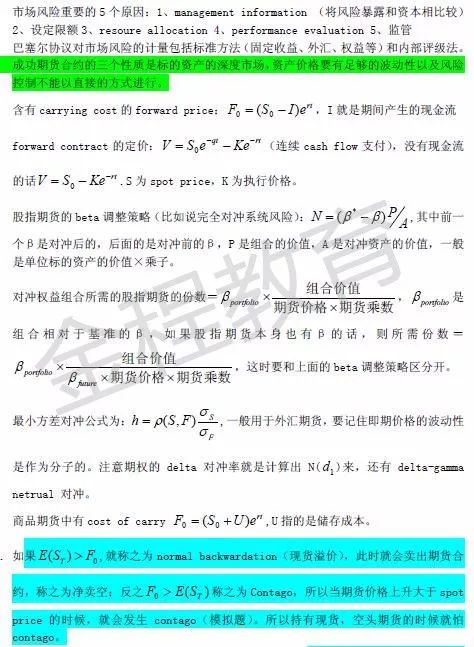 市场风险重要的5个原因：1、management information （将风险暴露和资本相比较）
2、设定限额 3、resoure allocation 4、performance evaluation 5、监管
巴塞尔协议对市场风险的计量包括标准方法（固定收益、外汇、权益等）和内部评级法。
成功期货合约的三个性质是标的资产的深度市场，资产价格要有足够的波动性以及风险
控制不能以直接的方式进行。
含有 carrying cost 的 forward price：F₀ = (S₀ − I)e^{rt}，I 就是期间产生的现金流
forward contract 的定价：V = S₀e^{−qt} − Ke^{−rt}（连续 cash flow 支付），没有现金流
的话 V = S₀ − Ke^{−rt}.S 为 spot price，K 为执行价格。
股指期货的 beta 调整策略（比如说完全对冲系统风险）：N = (β* − β)P/A，其中前一
个β是对冲后的，后面的是对冲前的β，P 是组合的价值，A 是对冲资产的价值，一般
是单位标的资产的价值×乘子。
对冲权益组合所需的股指期货的份数＝β_{portfolio} × 组合价值/(期货价格×期货乘数)，β_{portfolio} 是
组合相对于基准的β，如果股指期货本身也有β的话，则所需份数＝
β_{portfolio} × 组合价值/(β_{future}×期货价格×期货乘数)，这时要和上面的 beta 调整策略区分开。
最小方差对冲公式为：h = ρ(S,F) σ_S/σ_F，一般用于外汇期货，要记住即期价格的波动性
是作为分子的。注意期权的 delta 对冲率就是计算出 N(d₁)来，还有 delta-gamma
netrual 对冲。
商品期货中有 cost of carry F₀ = (S₀ + U)e^{rt}，U 指的是储存成本。
. 如果 E(S_T) > F₀，就称之为 normal backwardation（现货溢价），此时就会卖出期货合
约，称之为净卖空；反之 F₀ > E(S_T) 称之为 Contago，所以当期货价格上升大于 spot
price 的时候，就会发生 contago（模拟题）。所以持有现货，空头期货的时候就怕
contago。
金程教育